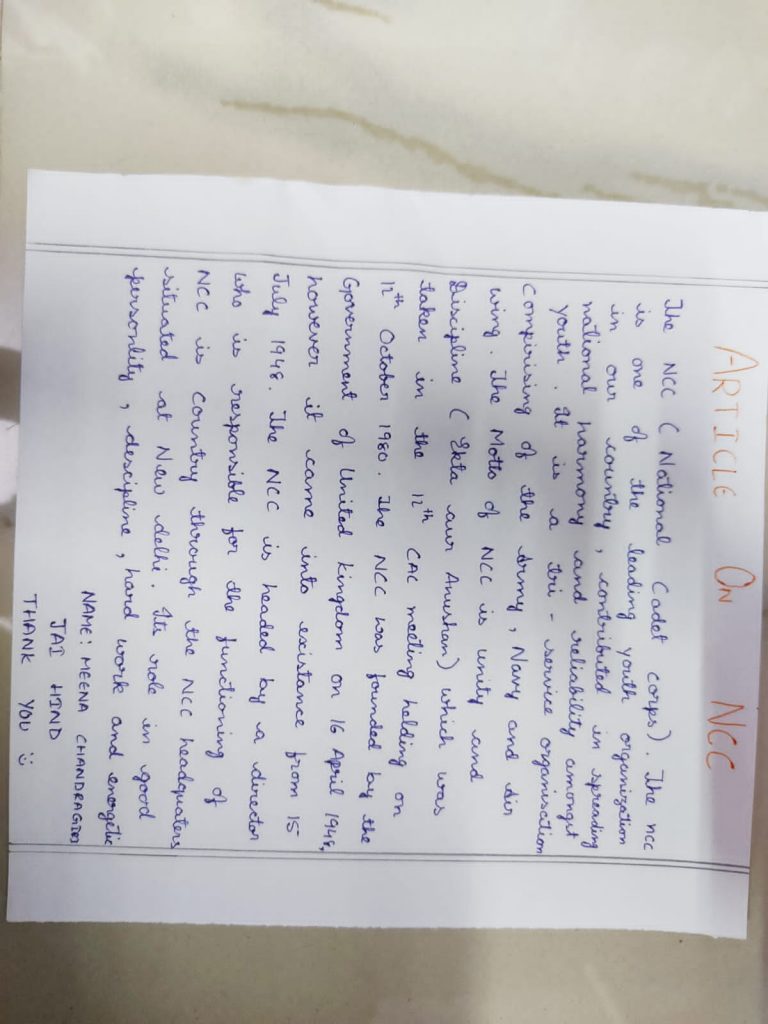 ARTICLE ON NCC
The NCC ( National Cadet Corps). The ncc
is one of the leading youth organization
in our country, contributed in spreading
national harmony and reliability amongst
youth. It is a tri - service organisation
Compirising of the Army, Navy and Air
wing. The Motto of NCC is unity and
Discipline ( Ekta aur Anushan) which was
taken in the 12th CAC meeting helding on
12th October 1980. The NCC was founded by the
Government of United kingdom on 16 April 1948,
however it came into existance from 15
July 1948. The NCC is headed by a director
who is responsible for the functioning of
NCC is Country through the NCC headquaters
situated at New delhi. Its role in good
personlity, descipline, hard work and energetic
NAME: MEENA CHANDRAGIRI
JAI HIND
THANK YOU